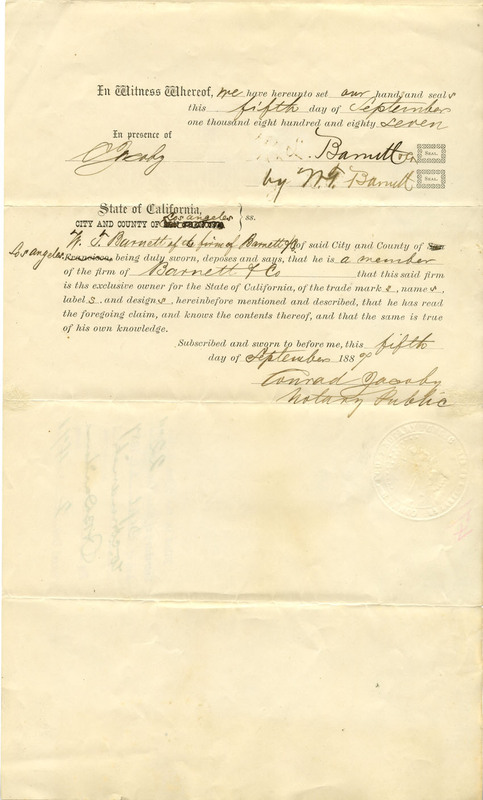 In Witness Whereof, we have hereunto set our hand and seals
this fifth day of September
one thousand eight hundred and eighty seven
In presence of
C Jacoby
Barnett & Co SEAL.
by W. T. Barnett SEAL.
State of California,
CITY AND COUNTY OF Los angeles } ss.
W. T. Barnett of the firm of Barnett & Co of said City and County of San
Los angeles Francisco, being duly sworn, deposes and says, that he is a member
of the firm of Barnett & Co that this said firm
is the exclusive owner for the State of California, of the trade mark s, name s,
label s, and design s, hereinbefore mentioned and described, that he has read
the foregoing claim, and knows the contents thereof, and that the same is true
of his own knowledge.
Subscribed and sworn to before me, this fifth
day of September 1887
Conrad Jacoby
Notary Public